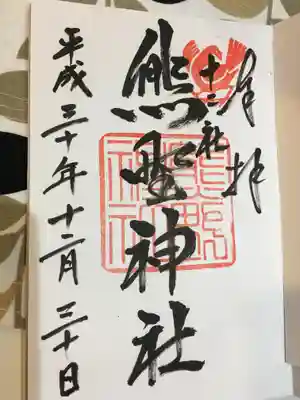 奉拝
十二社
熊野神社
熊野
神社
平成三十年十二月三十日